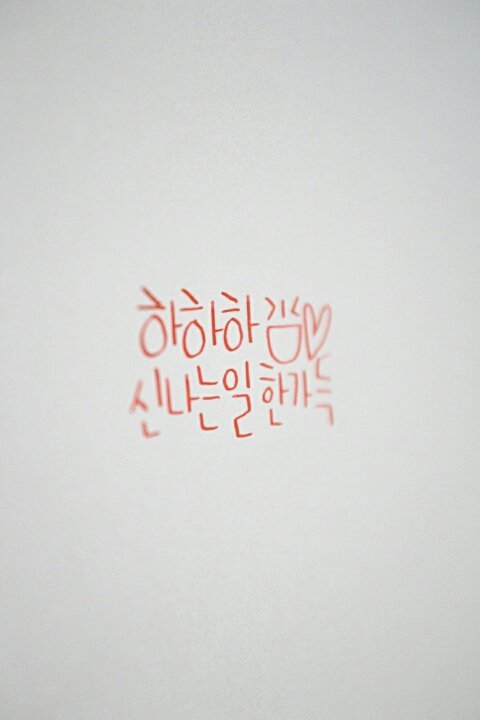 하하하
신나는일 한가득